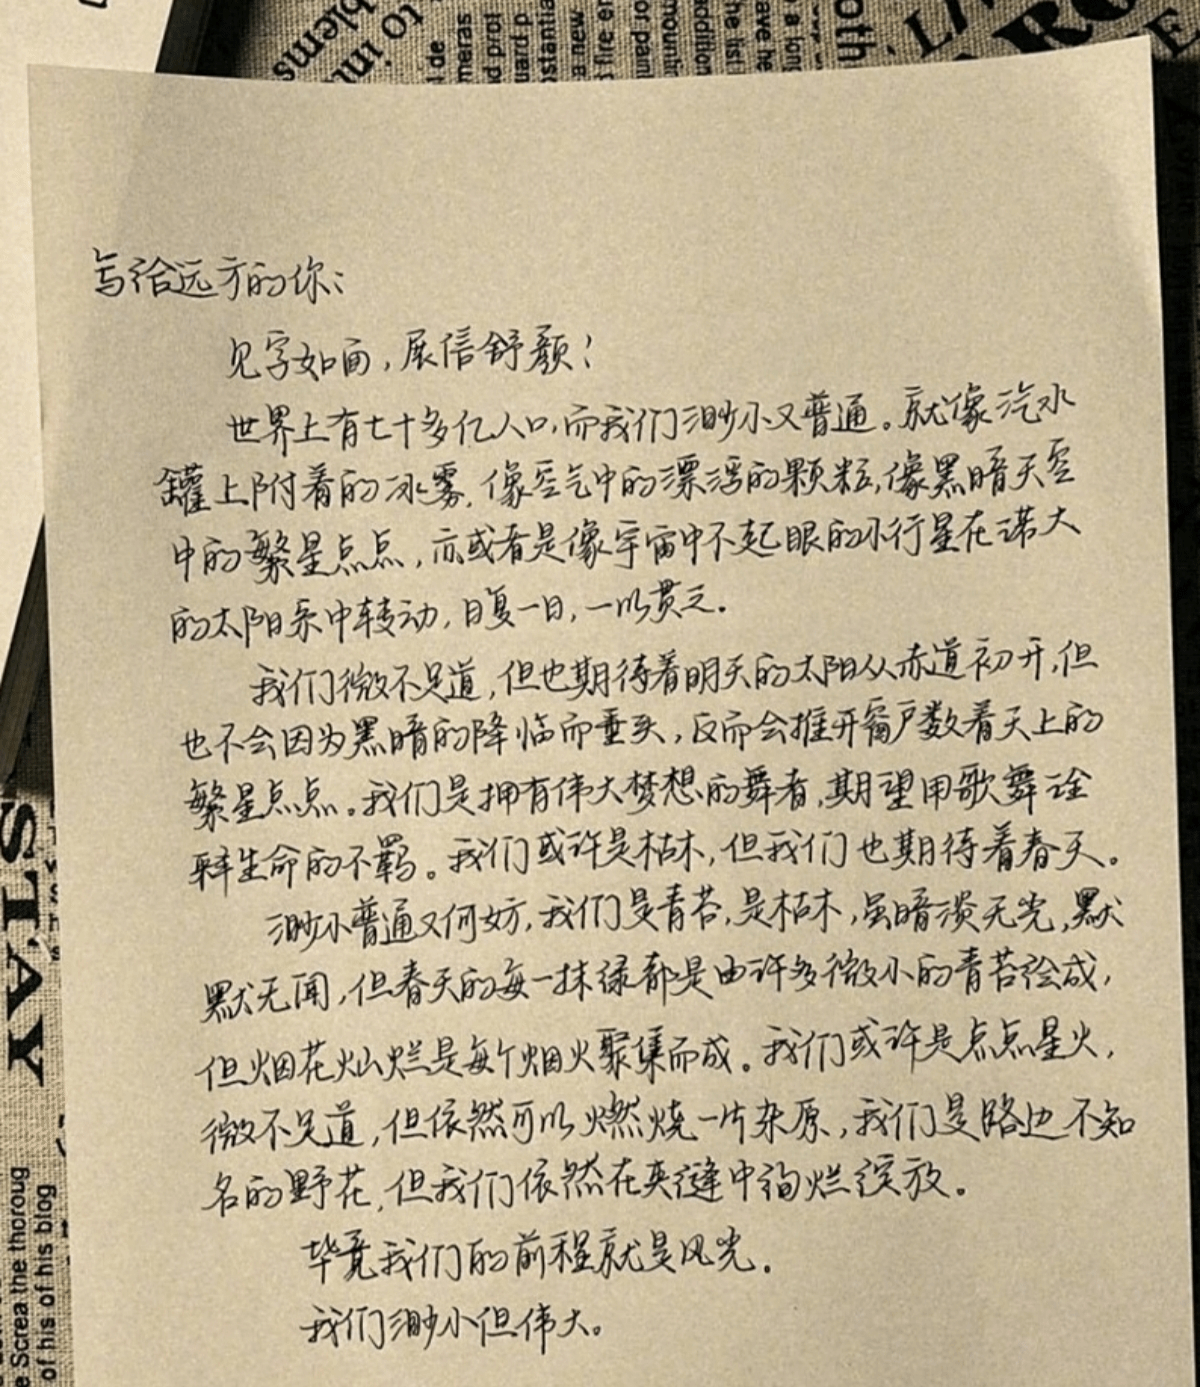 to in
blems
oth
写给远方的你：
见字如面，展信舒颜！
世界上有七十多亿人口，而我们渺小又普通。就像汽水
罐上附着的冰雾，像空气中的漂浮的颗粒，像黑暗天空
中的繁星点点，亦或者是像宇宙中不起眼的小行星在诺大
的太阳系中转动，日复一日，一以贯之。
我们微不足道，但也期待着明天的太阳从赤道初升，但
也不会因为黑暗的降临而垂头，反而会推开窗户数着天上的
繁星点点。我们是拥有伟大梦想的舞者，期望用歌舞诠
释生命的不羁。我们或许是枯木，但我们也期待着春天。
渺小普通又何妨，我们是青苔，是枯木，虽暗淡无光，默
默无闻，但春天的每一抹绿都是由许多微小的青苔绘成，
但烟花灿烂是每个烟火聚集而成。我们或许是点点星火，
微不足道，但依然可以燃烧一片草原，我们是路边不知
名的野花，但我们依然在夹缝中绚烂绽放。
毕竟我们的前程就是风光。
我们渺小但伟大。
STAY
e Screa the thoroug
of his of his blog